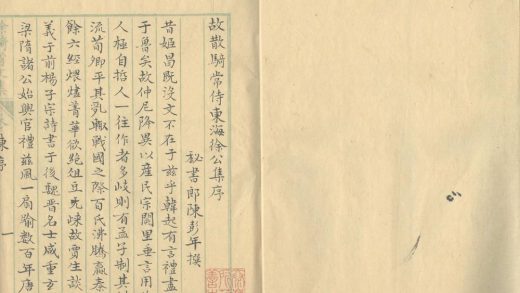 故散騎常侍東海徐公集序
秘書郎陳彭年撰
昔姬昌既没文不在于兹乎韓起有言禮盡
于魯矣故仲尼降異以産民宗闕里垂言用
人極自哲人一往作者多岐則有孟子制其
流荀卿平其亂轍戰國之際百氏沸騰嬴秦
餘六經煨燼菁華欲絶俎豆故賈生談
義于前楊子宗詩書于後魏晉名士咸重玄
梁隋諸公始興官禮兹風一扇踰數百年唐
陳序 一